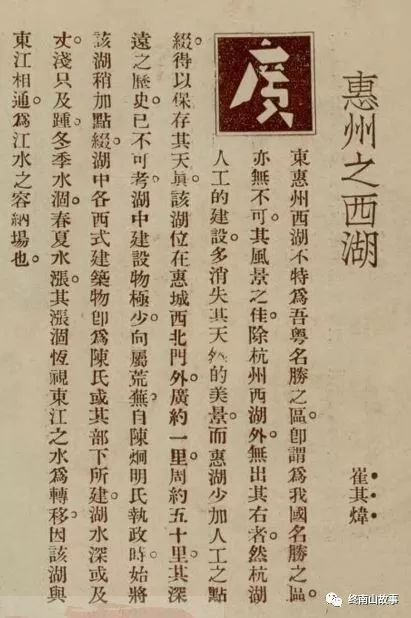 惠州之西湖
崔其煒
廣
東惠州西湖不特爲吾粵名勝之區。卽謂爲我國名勝之區。
亦無不可。其風景之佳。除杭州西湖外。無出其右者。然杭湖
人工的建設多消失其天然的美景。而惠湖少加人工之點
綴。得以保存其天眞。該湖位在惠城西北門外。廣約一里。周約五十里。其深
遠之歷史已不可考。湖中建設物極少。向屬荒蕪。自陳炯明氏執政時。始將
該湖稍加點綴。湖中各西式建築物卽爲陳氏或其部下所建。湖水深或及
丈。淺只及踵。冬季水涸。春夏水漲。其漲涸恆視東江之水爲轉移。因該湖與
東江相通。爲江水之容納場也。
终南山故事